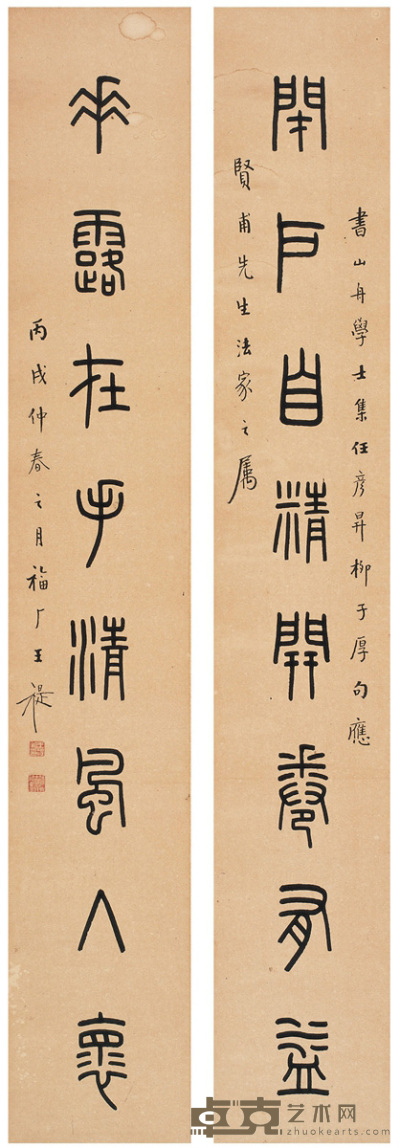 書山舟學士集任彥昇柳子厚句應
閉戶自精開卷有益
賢甫先生法家之属
垂露在手清風入懷
丙戌仲春之月福厂王禔
卓克艺术网
zhuokearts.com